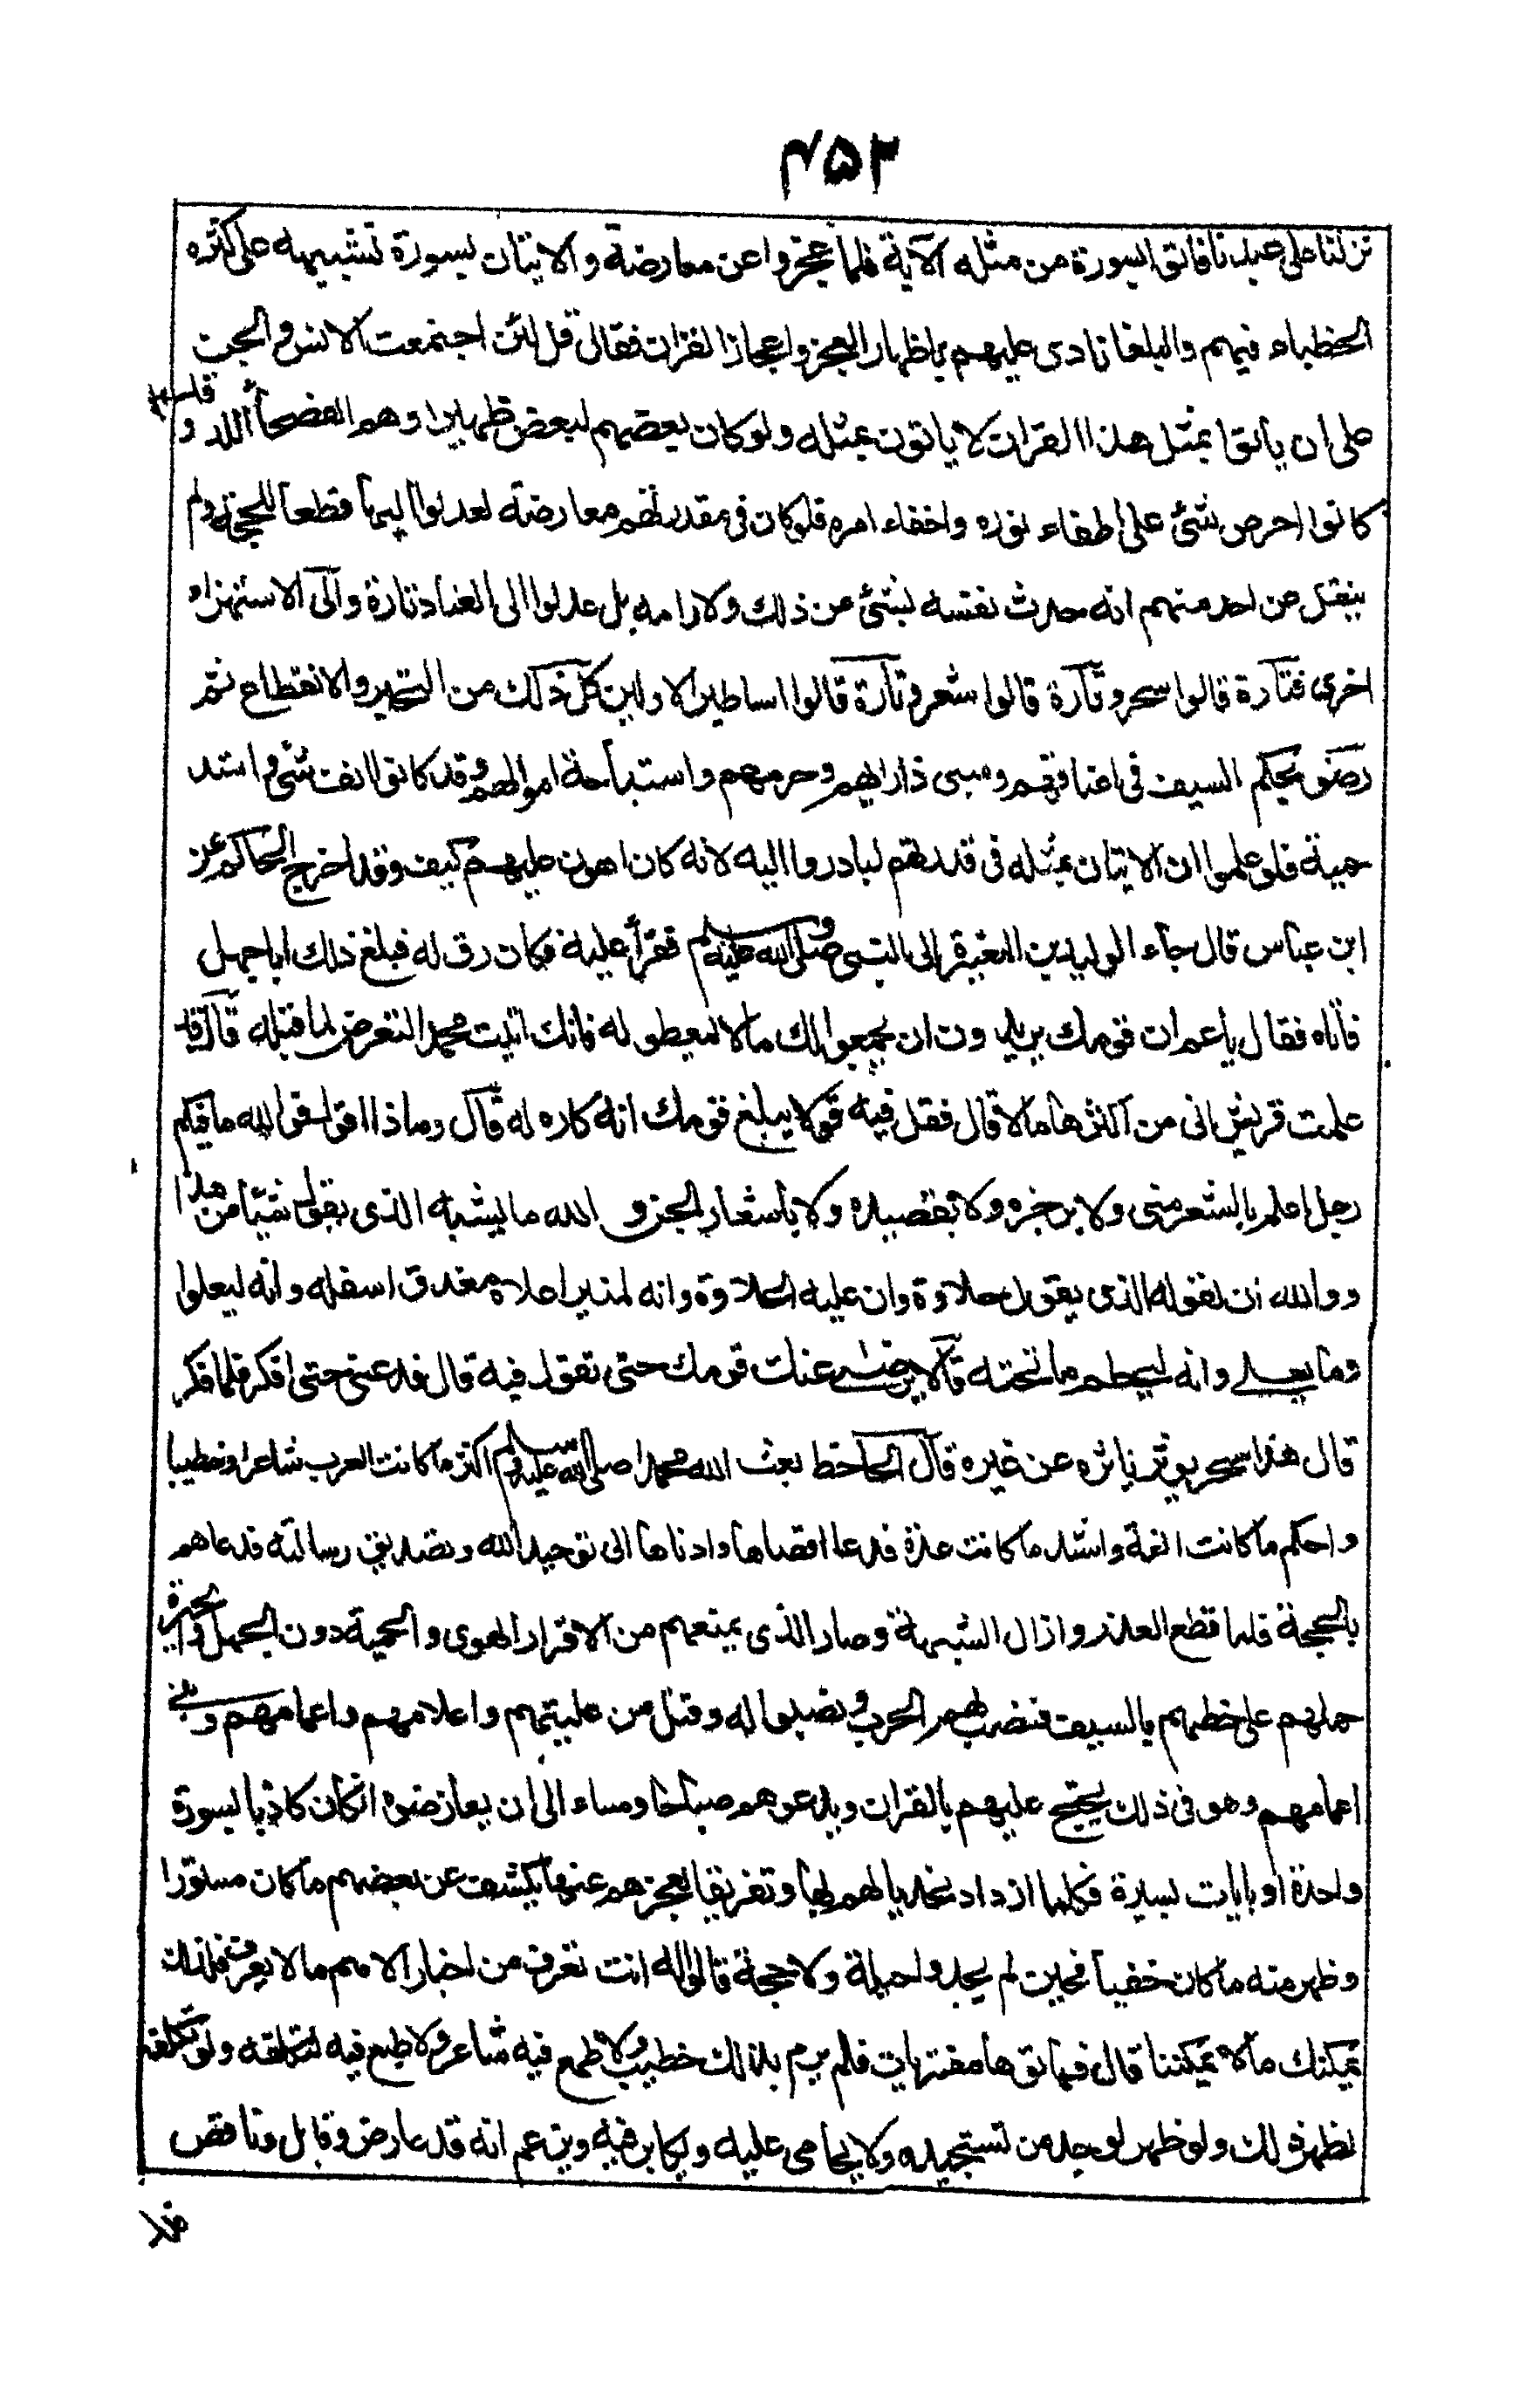 ۴۵۲
نزلنا على عبدنا فاتوا بسورة من مثله الآية فلما عجزوا عن معارضة والاتيان بسورة تشبيهه على كثره
الخطباء فيهم والبلغا نادى عليهم باظهار العجز واعجاز القران فقال قل لئن اجتمعت الانس والجن
على ان ياتوا بمثل هذا القران لا ياتون بمثله ولو كان بعضهم لبعض ظهيرا وهم الفصحاء اللد وقد
كانوا احرص شئ على اطفاء نوره واخفاء امره فلو كان فى مقدرتهم معارضة لعدلوا اليها قطعا للحجة ولم
ينقل عن احد منهم انه حدث نفسه بشئ من ذلك ولا رامه بل عدلوا الى العناد تارة والى الاستهزاء
اخرى فتارة قالوا سحر وتارة قالوا شعر وتارة قالوا اساطير الاولين كل ذلك من التحير والانقطاع ثم
رضوا بحكم السيف فى اعناقهم وسبى ذراريهم وحرمهم واستباحة اموالهم وقد كانوا انف شئ واشد
حمية فلو علموا ان الاتيان بمثله فى قدرتهم لبادروا اليه لانه كان اهون عليهم كيف وقد اخرج الحاكم عن
ابن عباس قال جاء الوليد بن المغيرة الى النبى صلى الله عليه وسلم فقرأ عليه فكان رق له فبلغ ذلك ابا جهل
فاتاه فقال يا عم ان قومك يريدون ان يجمعوا لك مالا ليعطو له فانك اتيت محمدا لتعرض لما قبله قال قد
علمت قريش انى من اكثرها مالا قال فقل فيه قولا يبلغ قومك انه كاره له قال وماذا اقول فوالله ما فيكم
رجل اعلم بالشعر منى ولا برجزه ولا بقصيده ولا باشعار الجن والله ما يشبه الذى يقول شيئا من هذا
ووالله ان لقوله الذى يقول حلاوة وان عليه الحلاوة وانه لمنير اعلاه مغدق اسفله وانه ليعلوا
وما يعلى وانه ليحطم ما تحته قال لا يرضى عنك قومك حتى تقول فيه قال فدعنى حتى افكر فلما فكر
قال هذا سحر يوثر ياثره عن غيره قال الجاحظ بعث الله محمدا صلى الله عليه وسلم اكثر ما كانت العرب شاعرا وخطيبا
واحكم ما كانت لغة واشد ما كانت عدة فدعا اقصاها وادناها الى توحيد الله وتصديق رسالته فدعاهم
بالحجة فلما قطع العذر وازال الشبهة وصار الذى يمنعهم من الاقرار الهوى والحمية دون الجهل والحيرة
حملهم على حظهم بالسيف فنصب لهم الحرب ونصبوا له وقتل من عليتهم واعلامهم واعمامهم وبنى
اعمامهم وهو فى ذلك يحتج عليهم بالقران ويدعوهم صباحا ومساء الى ان يعارضوه ان كان كاذبا بسورة
واحدة او بايات يسيرة فكلما ازداد تحديا لهم بها وتقريعا لعجزهم عنها تكشف عن بعضهم ما كان مستورا
وظهر منه ما كان خفيا فحين لم يجدوا حيلة ولا حجة قالوا له انت تعرف من اخبار الامم ما لا يعرف فلذلك
يمكنك ما لا يمكننا قال فهاتوها مفتريات فلم يرم بذلك خطيب ولا طمع فيه شاعر ولا طبع فيه لتكلفه ولو تكلفه
لظهر ذلك ولو ظهر لوجد من تستجيده ولا يحامى عليه ويكابر فيه ويزعم انه قد عارض وقابل وناقض